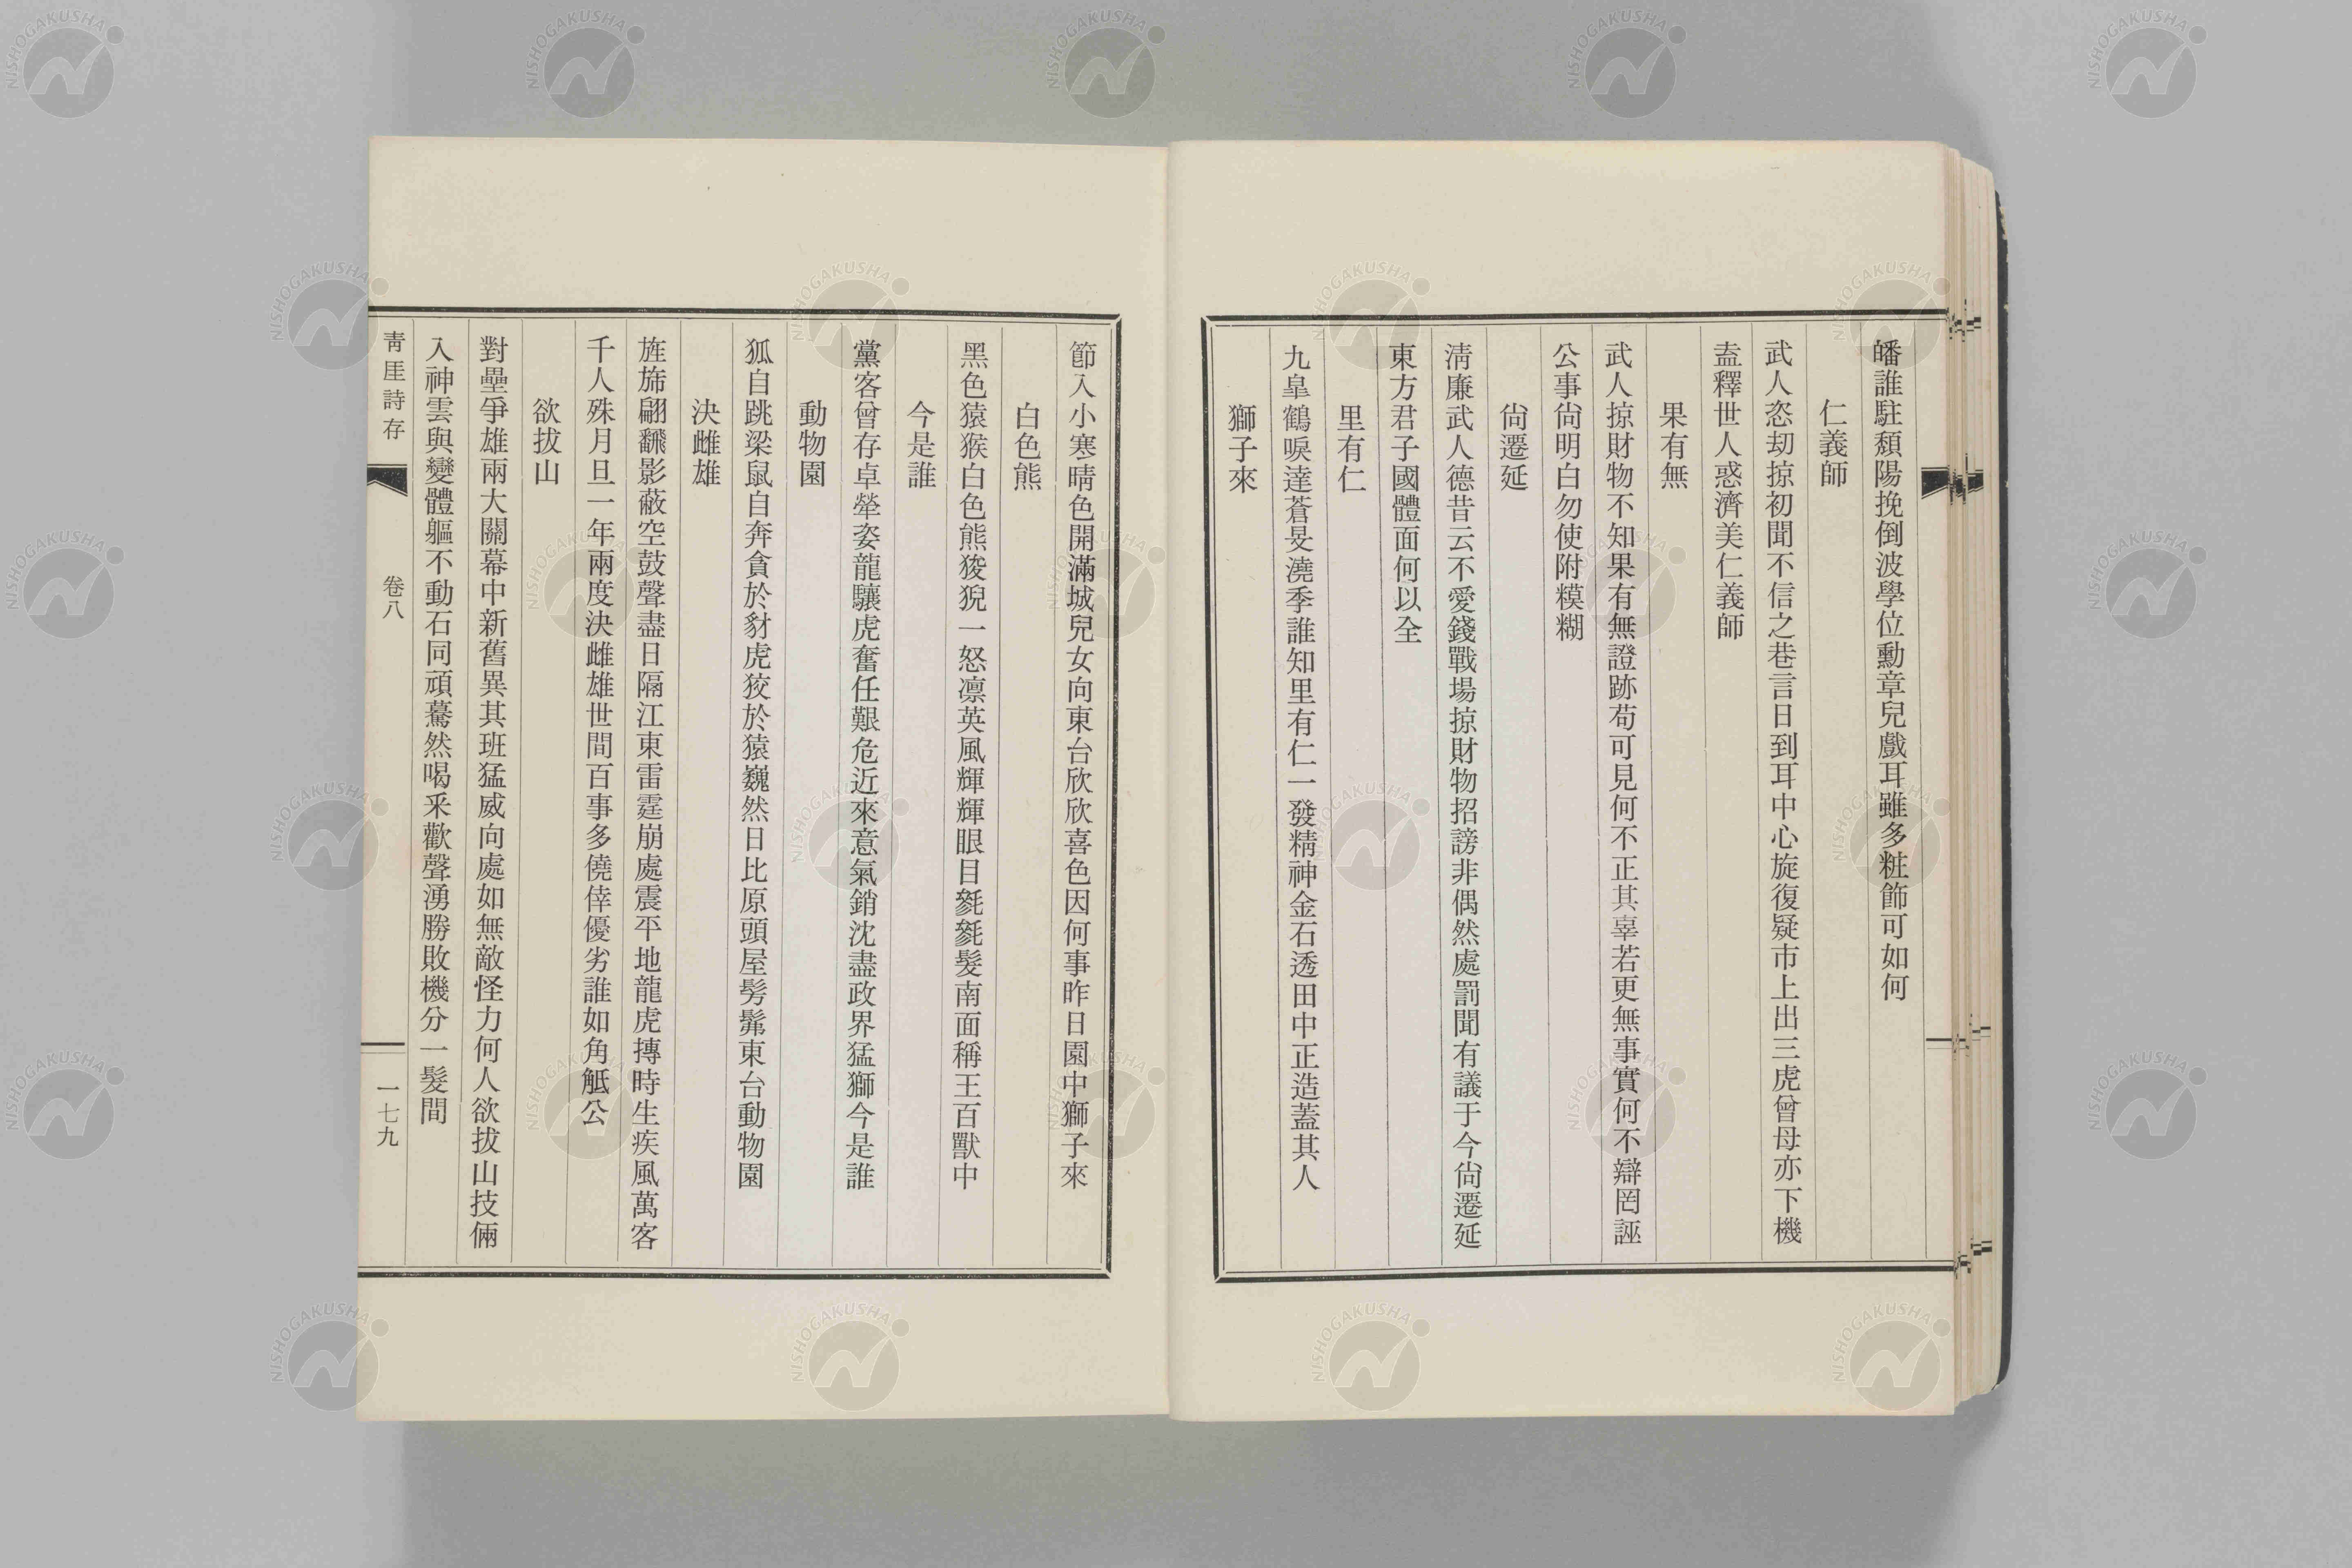 皤誰駐頽陽挽倒波學位勳章兒戲耳雖多粧節可如何
仁義師
武人恣刧掠初聞不信之巷言日到耳中心旋復疑市上出三虎曾母亦下機
盍釋世人惑濟美仁義師
果有無
武人掠財物不知果有無證跡苟可見何不正其辜若更無事實何不辯罔誣
公事尙明白勿使附糢糊
尙遷延
淸廉武人德昔云不愛錢戰場掠財物招謗非偶然處罰聞有議于今尙遷延
東方君子國體面何以全
里有仁
九皐鶴唳達蒼旻澆季誰知里有仁一發精神金石透田中正造蓋其人
獅子來
節入小寒晴色開滿城兒女向東台欣欣喜色因何事昨日園中獅子來
白色熊
黑色猿猴白色熊狻猊一怒凛英風輝輝眼目毿毿髮南面稱王百獸中
今是誰
黨客曾存卓犖姿龍驤虎奮任艱危近來意氣銷沈盡政界猛獅今是誰
動物園
狐自跳梁鼠自奔貪於豺虎狡於猿巍然日比原頭屋髣髴東台動物園
決雌雄
旌旆翩飜影蔽空鼓聲盡日隔江東雷霆崩處震平地龍虎摶時生疾風萬客
千人殊月旦一年兩度決雌雄世間百事多僥倖優劣誰如角觝公
欲拔山
對壘爭雄兩大關幕中新舊異其班猛威向處如無敵怪力何人欲拔山技倆
入神雲與變體軀不動石同頑驀然喝釆歡聲湧勝敗機分一髮間
靑厓詩存
卷八
一七九
NISHOGAKUSHA